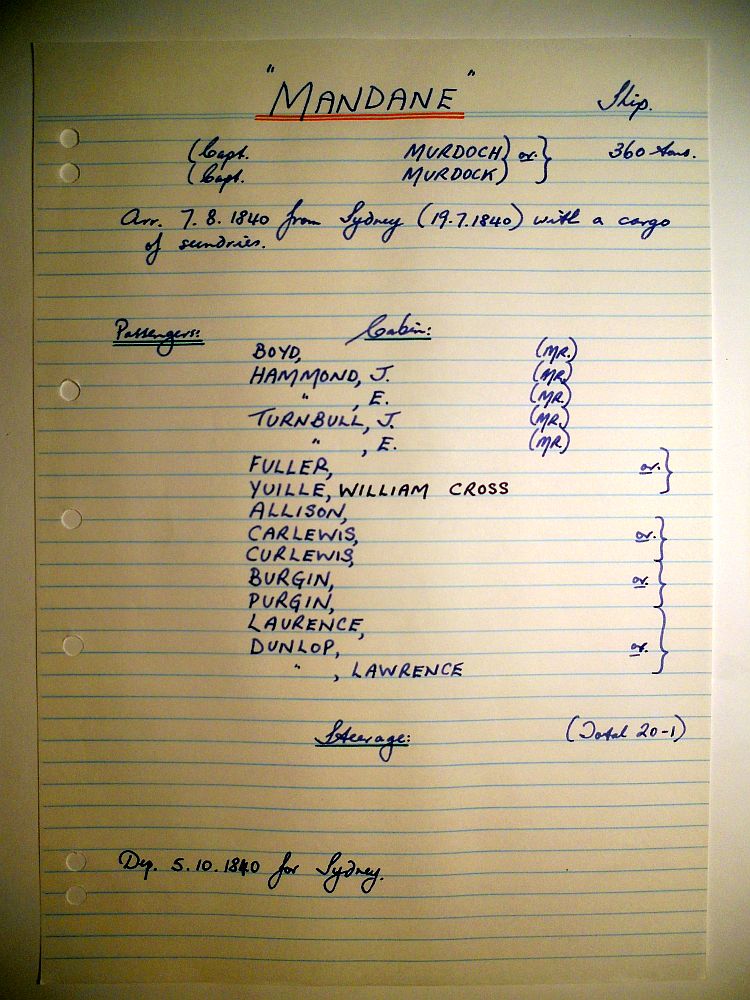 "MANDANE" Ship.
(Capt. MURDOCH) or. } 360 tons.
(Capt. MURDOCK)
Arr. 7.8.1840 from Sydney (19.7.1840) with a cargo
of sundries.
Passengers: Cabin:
BOYD, (MR.)
HAMMOND, J. (MR.)
" , E. (MR.)
TURNBULL, J. (MR.)
" , E. (MR.)
FULLER, or. }
YUILLE, WILLIAM CROSS
ALLISON,
CARLEWIS, or. }
CURLEWIS,
BURGIN, or. }
PURGIN,
LAURENCE,
DUNLOP, or. }
" , LAWRENCE
Steerage: (Total 20-1)
Dep. 5.10.1840 for Sydney.